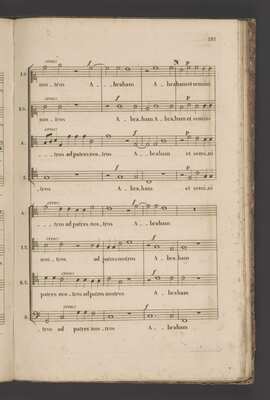 cresc:
I.S. f p
nos _ tros A _ _ braham A _ braham et semini
cresc:
f p
nos _ tros A _ bra,ham A _ bra,ham et semini
cresc:
A. f p
_ _ _ tros ad patres nos, tros A _ _ braham et semi,ni
cresc:
f p
_ tros A _ bra,ham et semi,ni
cresc:
f
_ _ _ tros ad patres nos, tros A _ _ braham
cresc:
f
nos _ tros, ad patres nostros A _ _ bra,ham
cresc:
f
patres nos _ tros ad patres nostros A _ braham
cresc:
f
_ tros ad patres nos _ tros A _ braham